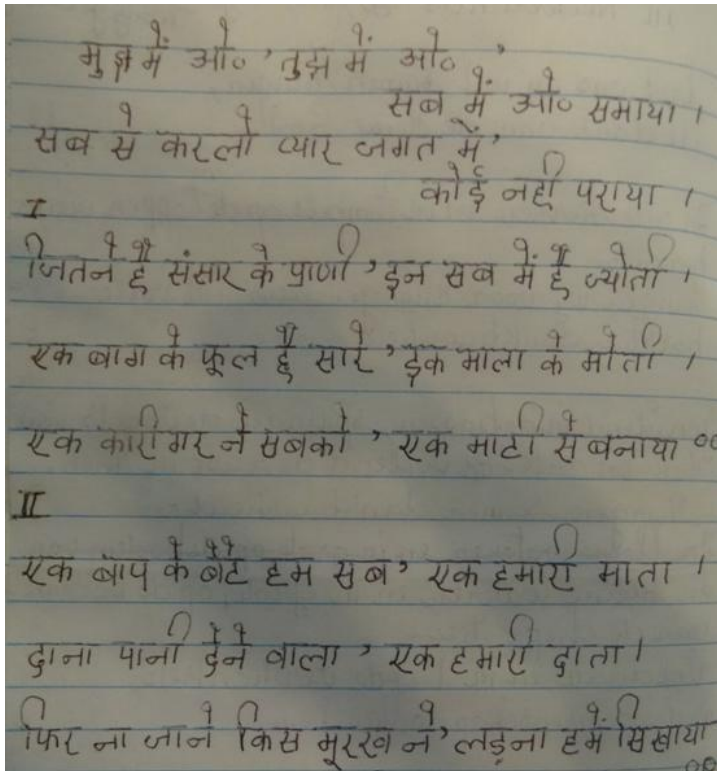 मुझ में ओ॰, तुझ में ओ॰,
सब में ओ॰ समाया ।
सब से करलो प्यार जगत में,
कोई नहीं पराया ।
I
जितने है संसार के प्राणी, इन सब में है ज्योती ।
एक बाग के फूल है सारे, इक माला के मोती ।
एक कारीगर ने सबको, एक माटी से बनाया ॰॰
II
एक बाप के बेटे हम सब, एक हमारी माता ।
दाना पानी देने वाला, एक हमारी दाता ।
फिर ना जाने किस मूरख ने, लड़ना हमें सिखाया ॰॰